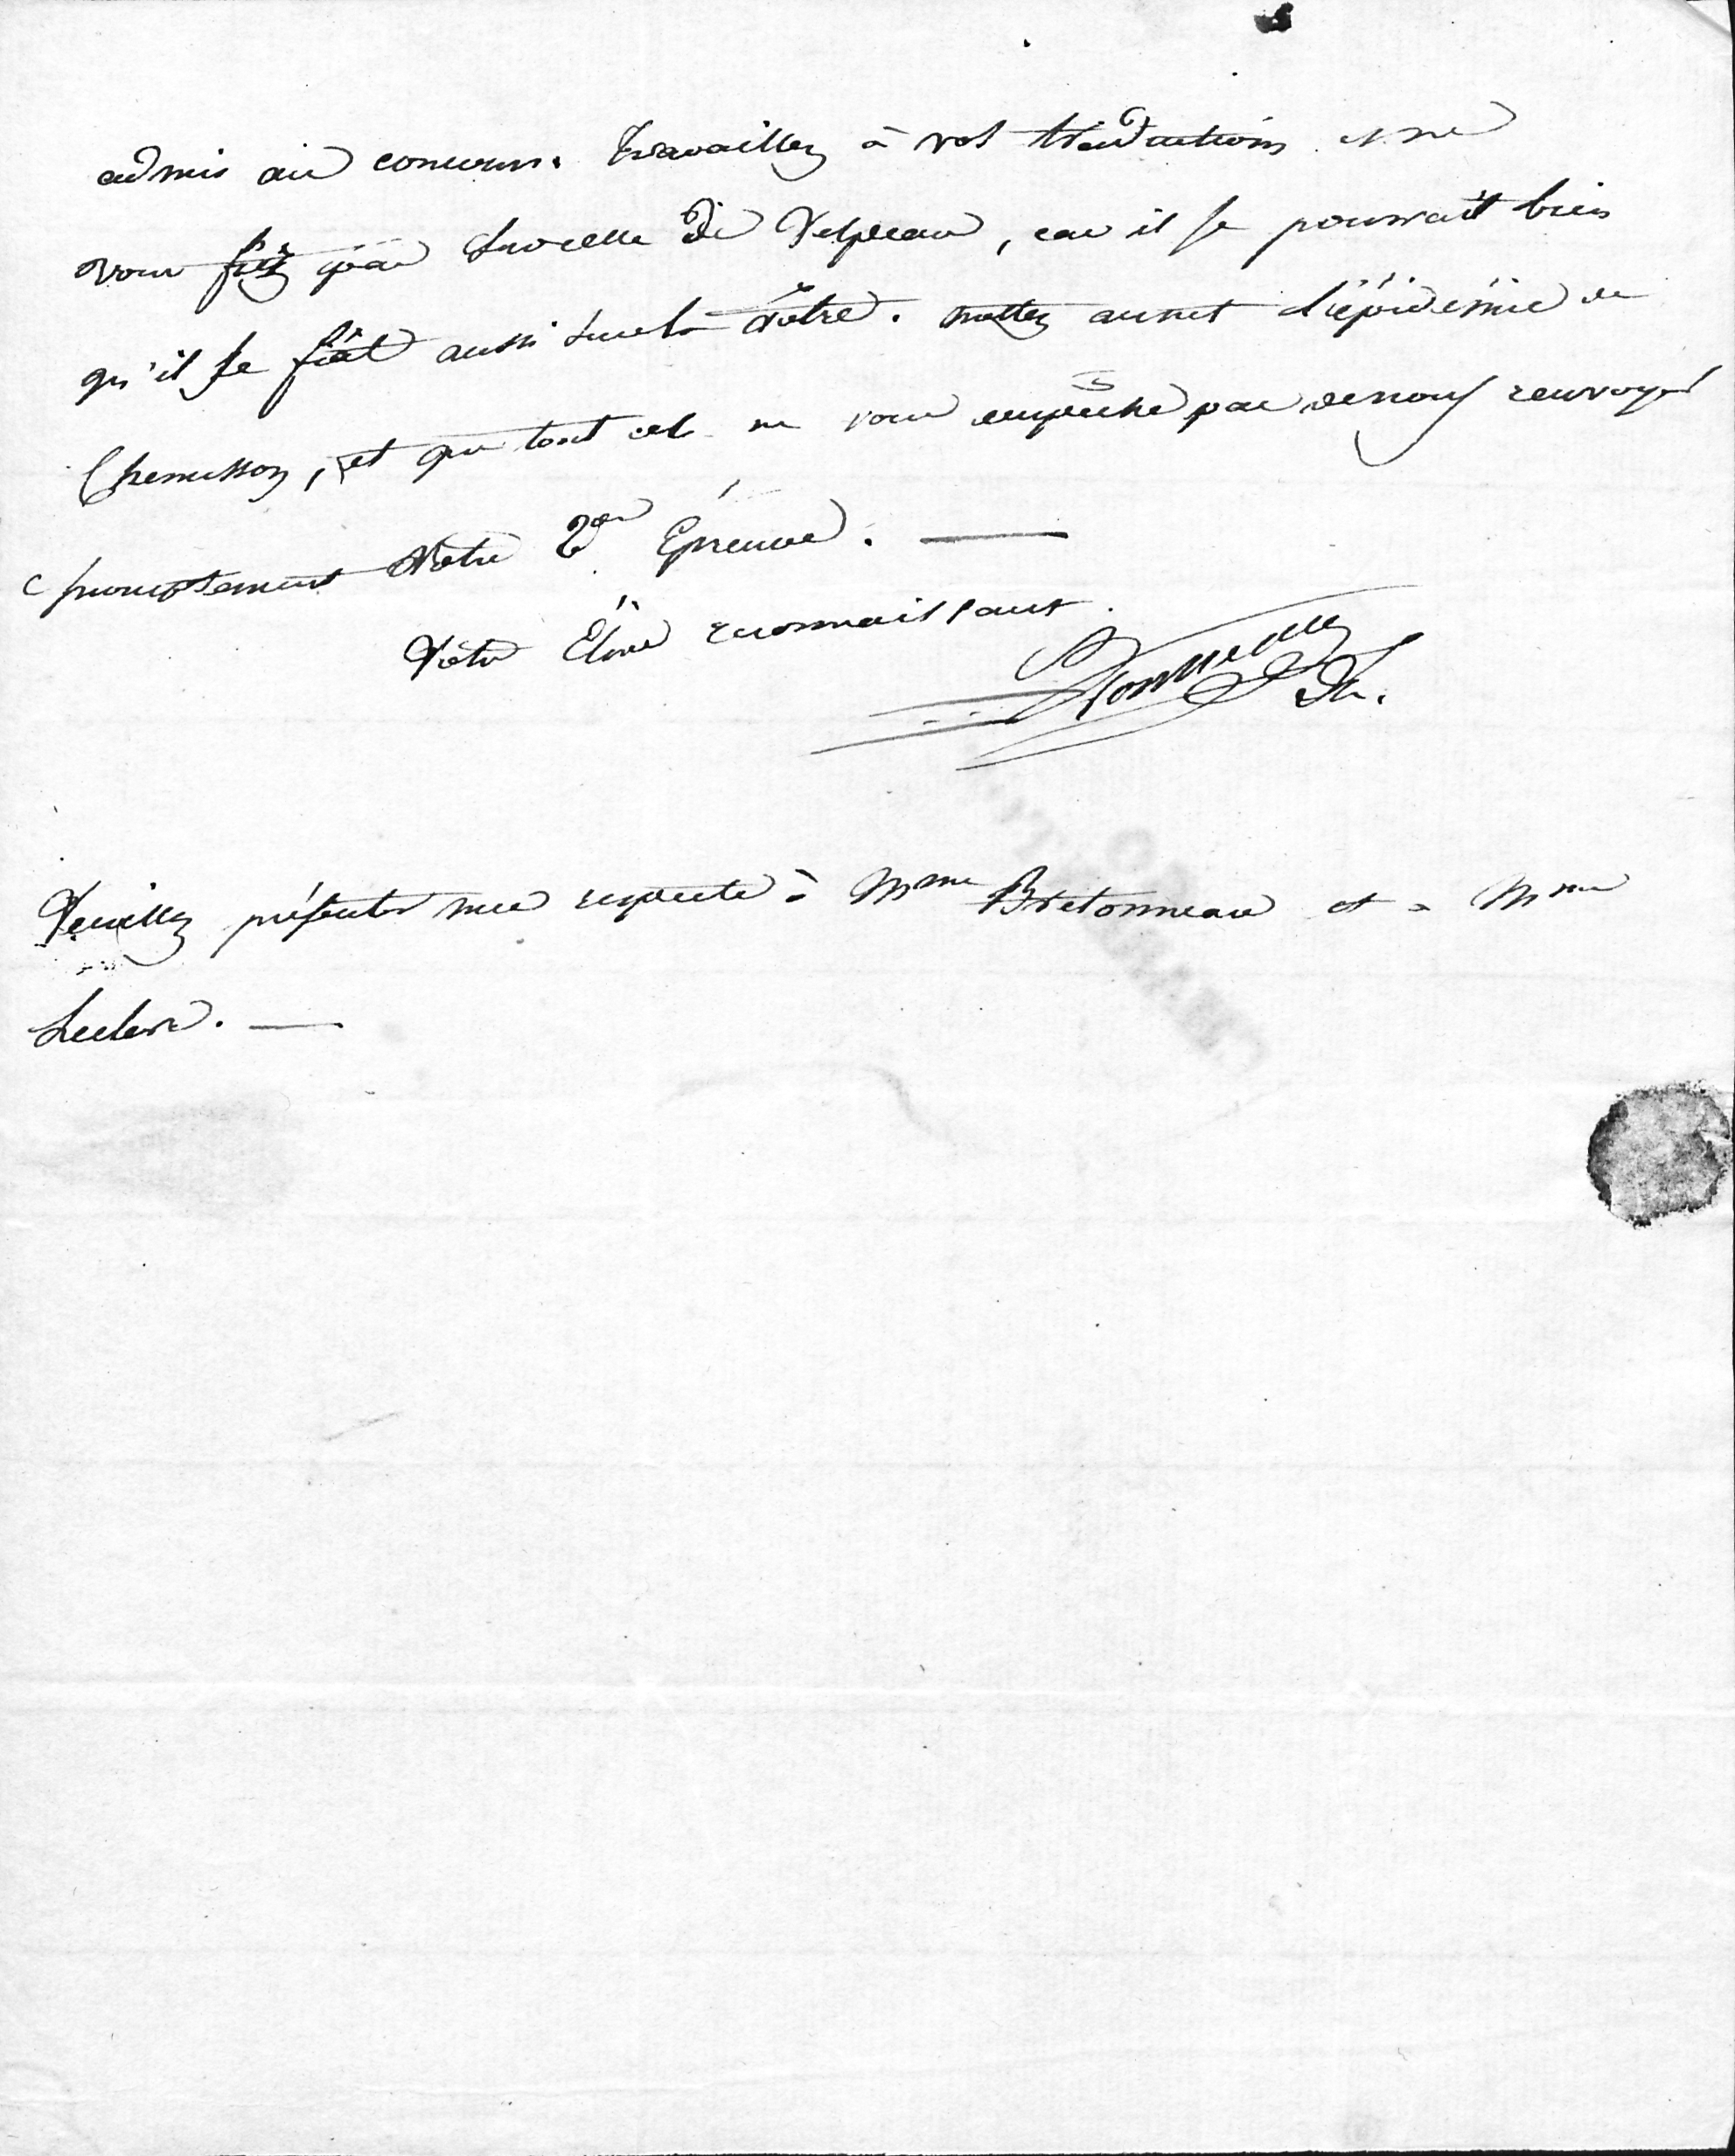 admis au concours. Travaillez à vos traductions et ne
vous fiez pas sur celle de Velpeau, car il se pourrait bien
qu'il se fiât aussi sur la vôtre. mettez au net l'épidémie de
Chenusson, et que tout cela ne vous empêche pas de nous renvoyer
promptement Votre 2de Épreuve. —
Votre Élève reconnaissant.
Veuillez présenter mes respects à Mme Bretonneau et à Mme
Leclerc. —